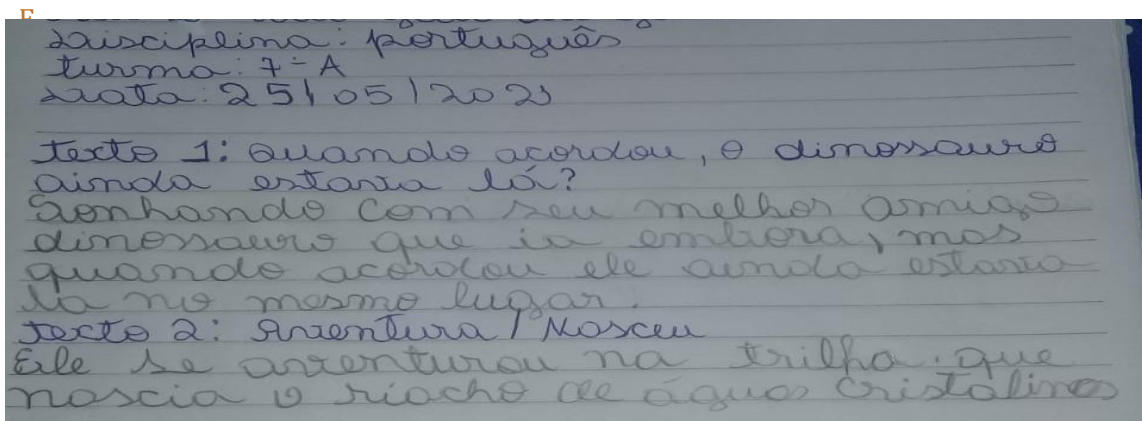 E
Disciplina: português
turma: 7ª A
Data: 25/05/2021
texto 1: Quando acordou, o dinossauro
ainda estava lá?
Sonhando com seu melhor amigo
dinossauro que ia embora, mas
quando acordou ele ainda estava
la no mesmo lugar.
texto 2: Aventura / Nasceu
Ele se aventurou na trilha que
nascia o riacho de águas cristalinas